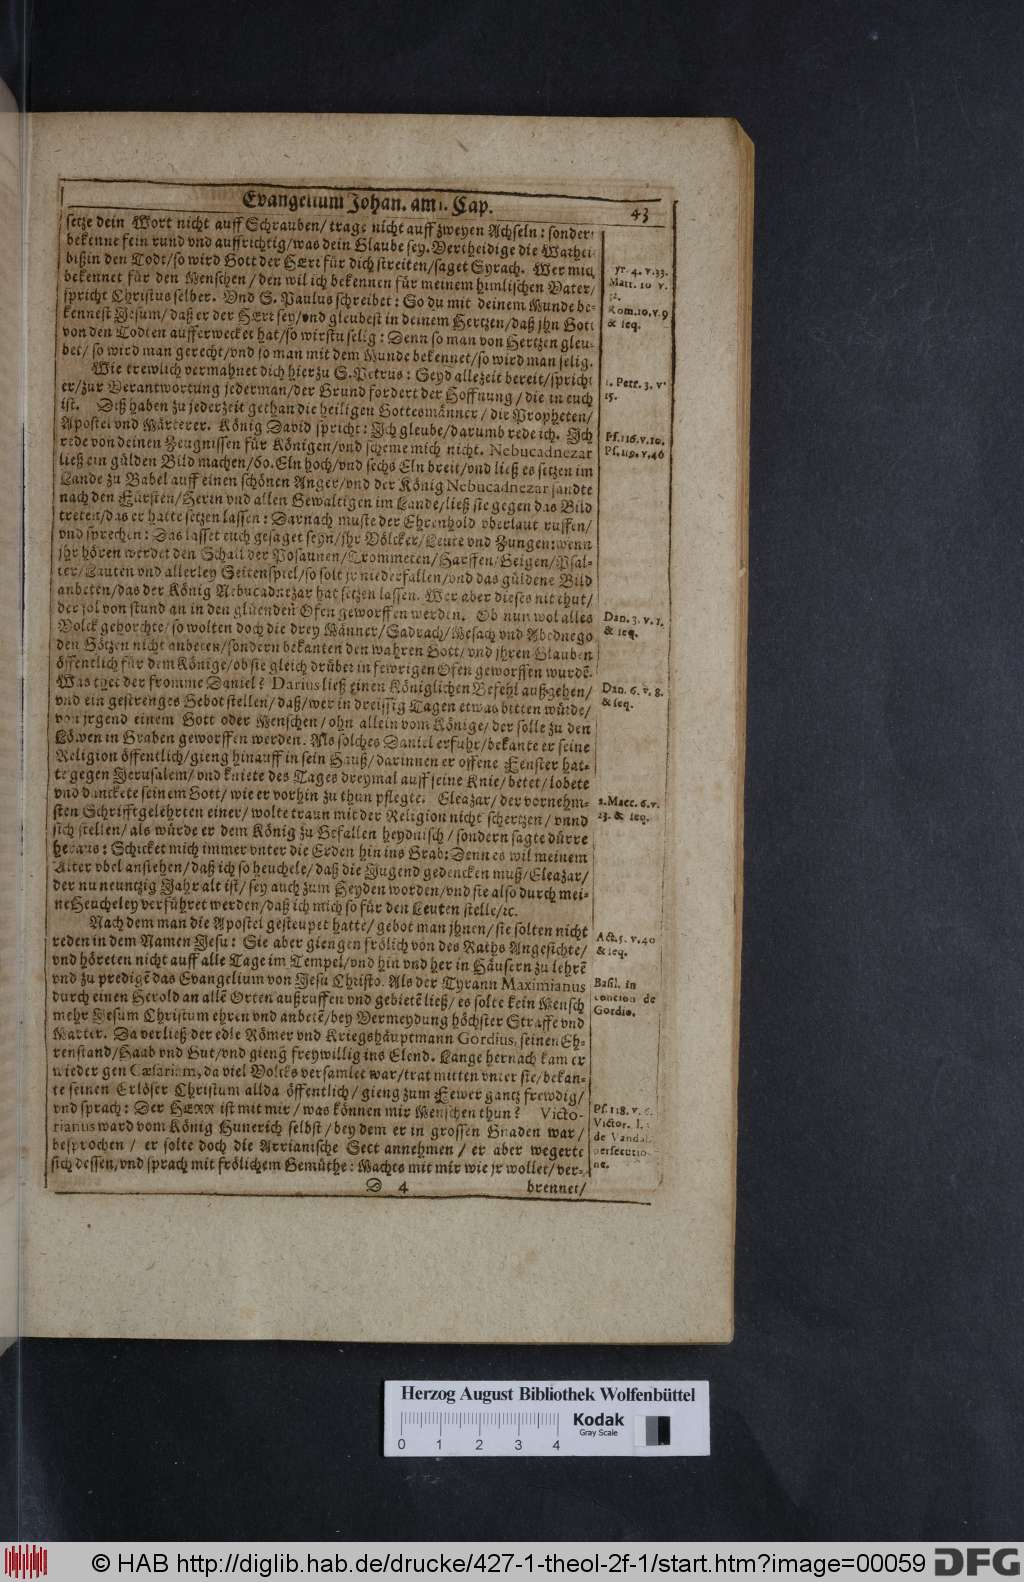 Evangelium Johan. am 1. Cap.
43
setze dein Wort nicht auff Schrauben/ trage nicht auff zweyen Achseln: sonder
bekenne fein rund vnd auffrichtig/ was dein Glaube sey. Vertheidige die Warhei
bißin den Todt/ so wird Gott der HErr für dich streiten/ saget Syrach. Wer mich
bekennet für den Menschen/ den wil ich bekennen für meinem himlischen Vater/
spricht Christus selber. Vnd S. Paulus schreibet: So du mit deinem Munde be-
kennest Jesum/ daß er der HErr sey/ vnd gleubest in deinem Hertzen/ daß jhn Gott
von den Todten aufferwecket hat/ so wirstu selig: Denn so man von Hertzen gleu-
bet/ so wird man gerecht/ vnd so man mit dem Munde bekennet/ so wird man selig.
Wie trewlich vermahnet dich hierzu S. Petrus: Seyd allezeit bereit/ spricht
er/ zur Verantwortung jederman/ der Grund fordert der Hoffnung/ die in euch
ist. Diß haben zu jederzeit gethan die heiligen Gottesmänner/ die Propheten/
Apostel vnd Märterer. König David spricht: Ich gleube/ darumb rede ich. Ich
rede von deinen Zeugnissen für Königen/ vnd scheme mich nicht. Nebucadnezar
ließ ein gülden Bild machen/ 60. Eln hoch/ vnd sechs Eln breit/ vnd ließ es setzen im
Lande zu Babel auff einen schönen Anger/ vnd der König Nebucadnezar sandte
nach den Fürsten/ Herrn vnd allen Gewaltigen im Lande/ ließ sie gegen das Bild
treten/ das er hatte setzen lassen: Darnach muste der Ehrenhold vberlaut ruffen/
vnd sprechen: Das lasset euch gesaget seyn/ jhr Völcker/ Leute vnd Zungen: wenn
jhr hören werdet den Schall der Posaunen/ Trommeten/ Harffen/ Geigen/ Psal-
ter/ Lauten vnd allerley Seitenspiel/ so solt jr niederfallen/ vnd das güldene Bild
anbeten/ das der König Nebucadnezar hat setzen lassen. Wer aber dieses nit thut/
der sol von stund an in den glüenden Ofen geworffen werden. Ob nun wol alles
Volck gehorchte/ so wolten doch die drey Männer/ Sadrach/ Mesach vnd Abednego
den Götzen nicht anbeten/ sondern bekanten den wahren Gott/ vnd jhren Glauben
öffentlich für dem Könige/ ob sie gleich drüber in fewrigen Ofen geworffen wurdē.
Was thet der fromme Daniel? Darius ließ einen Königlichen Befehl außgehen/
vnd ein gestrenges Gebot stellen/ daß/ wer in dreissig Tagen etwas bitten würde/
von jrgend einem Gott oder Menschen/ ohn allein vom Könige/ der solle zu den
Löwen in Graben geworffen werden. Als solches Daniel erfuhr/ bekante er seine
Religion öffentlich/ gieng hinauff in sein Hauß/ darinnen er offene Fenster hat-
te gegen Jerusalem/ vnd kniete des Tages dreymal auff seine Knie/ betet/ lobete
vnd danckete seinem Gott/ wie er vorhin zu thun pflegte. Eleazar/ der vornehm-
sten Schrifftgelehrten einer/ wolte traun mit der Religion nicht schertzen/ vnnd
sich stellen/ als würde er dem König zu Gefallen heydnisch/ sondern sagte dürre
heraus: Schicket mich immer vnter die Erden hin ins Grab: Denn es wil meinem
Alter vbel anstehen/ daß ich so heuchele/ daß die Jugend gedencken muß/ Eleazar/
der nu neuntzig Jahr alt ist/ sey auch zum Heyden worden/ vnd sie also durch mei-
ne Heucheley verführet werden/ daß ich mich so für den Leuten stelle/ ꝛc.
Nach dem man die Apostel gesteupet hatte/ gebot man jhnen/ sie solten nicht
reden in dem Namen Jesu: Sie aber giengen frölich von des Raths Angesichte/
vnd höreten nicht auff alle Tage im Tempel/ vnd hin vnd her in Häusern zu lehrē
vnd zu predigē das Evangelium von Jesu Christo. Als der Tyrann Maximianus
durch einen Herold an allē Orten außruffen vnd gebietē ließ/ es solte kein Mensch
mehr Jesum Christum ehren vnd anbetē/ bey Vermeydung höchster Straffe vnd
Marter. Da verließ der edle Römer vnd Kriegshäuptmann Gordius, seinen Eh-
renstand/ Haab vnd Gut/ vnd gieng freywillig ins Elend. Lange hernach kam er
wieder gen Cæsarium, da viel Volcks versamlet war/ trat mitten vnter sie/ bekan-
te seinen Erlöser Christum allda öffentlich/ gieng zum Fewer gantz frewdig/
vnd sprach: Der HERR ist mit mir/ was können mir Menschen thun? Victo-
rianus ward vom König Hunerich selbst/ bey dem er in grossen Gnaden war/
besprochen/ er solte doch die Arrianische Sect annehmen/ er aber wegerte
sich dessen/ vnd sprach mit frölichem Gemüthe: Machts mit mir wie jr wollet/ ver-
D 4
brennet/
yr. 4. v. 33.
Matt. 10 v.
32.
Rom. 10. v. 9
& seq.
1. Petr. 3. v.
15.
Ps. 116. v. 10.
Ps. 119. v. 46
Dan. 3. v. 1.
& seq.
Dan. 6. v. 8.
& seq.
2. Macc. 6. v.
23. & seq.
Act. 5. v. 40
& seq.
Basil. in
concion de
Gordio.
Ps. 118. v. 6.
Victor. l.
de Vandal.
persecutio-
ne.
Herzog August Bibliothek Wolfenbüttel
Kodak
Gray Scale
0 1 2 3 4
© HAB http://diglib.hab.de/drucke/427-1-theol-2f-1/start.htm?image=00059
DFG